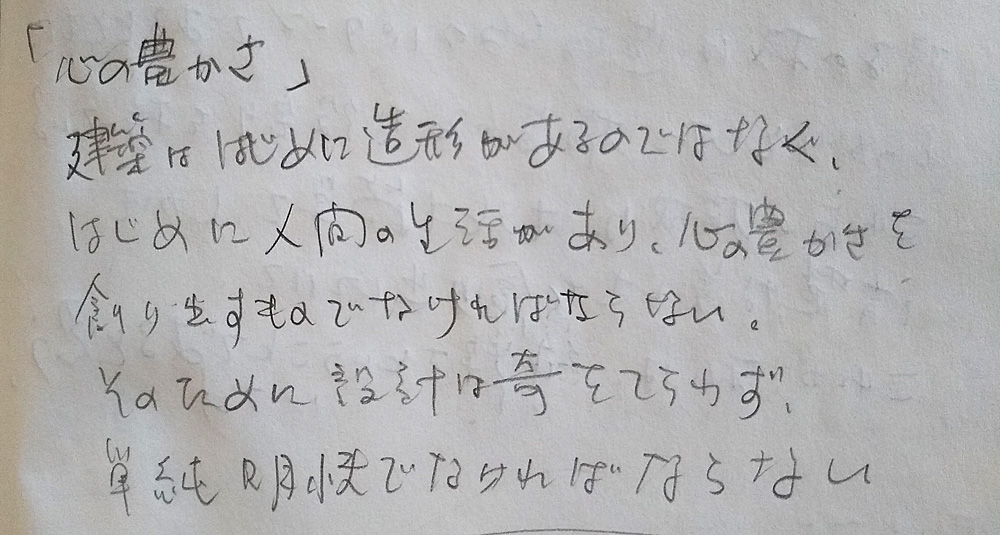 「心の豊かさ」
建築ははじめに造形があるのではなく、
はじめに人間の生活があり、心の豊かさを
創り出すものでなければならない。
そのために設計は奇をてらわず、
単純明快でなければならない